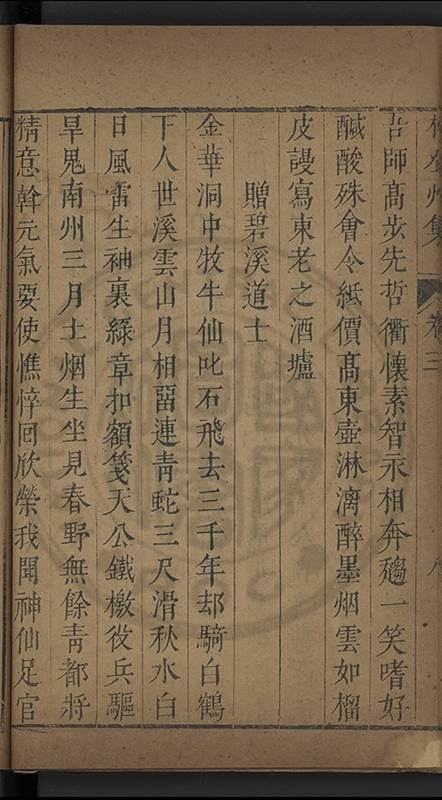 吾師高步先哲衢懷素智永相奔趨一笑嗜好
醎酸殊會令紙價髙東壺淋漓醉墨烟雲如榴
皮謾寫東老之酒壚
贈碧溪道士
金華洞中牧牛仙叱石飛去三千年却騎白鶴
下人世溪雲山月相留連青蛇三尺滑秋水白
日風雷生袖裏綠章扣額箋天公鐵檄役兵驅
旱鬼南州三月土烟生坐見春野無餘靑都將
精意斡元氣要使憔悴回欣榮我聞神仙足官
卷三